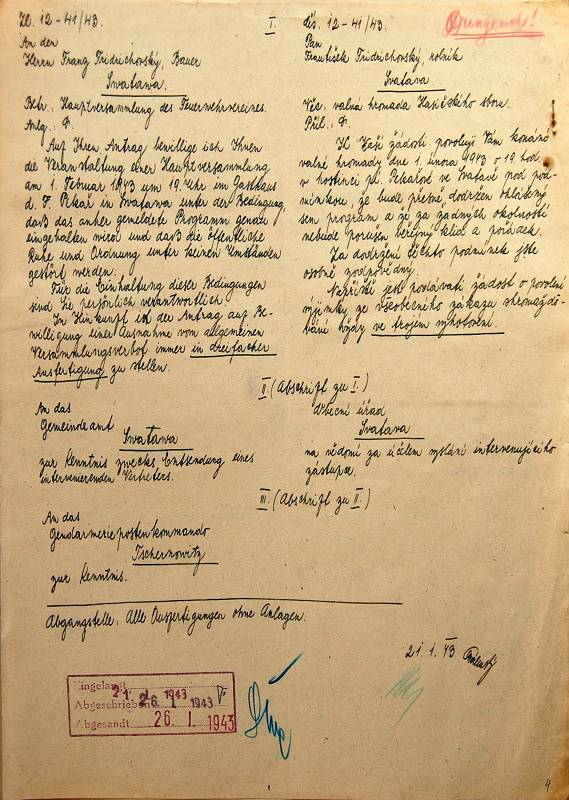 Zl. 12-41/43.
I.
An den
Herrn Franz Fridrichovský, Bauer
Swatawa.
Betr.: Hauptversammlung des Feuerwehrvereines.
Anlg.: 0.
Auf Ihren Antrag bewillige ich Ihnen
die Veranstaltung einer Hauptversammlung
am 1. Februar 1943 um 19. Uhr im Gasthaus
d. F. Pekař in Swatawa unter der Bedingung,
daß das anher gemeldete Programm genau
eingehalten wird und daß die öffentliche
Ruhe und Ordnung unter keinen Umständen
gestört werden.
Für die Einhaltung dieser Bedingungen
sind Sie persönlich verantwortlich.
In Hinkunft ist der Antrag auf Be-
willigung einer Ausnahme vom allgemeinen
Versammlungsverbot immer in dreifacher
Ausfertigung zu stellen.
Dringend!
čís. 12-41/43.
Pan
František Fridrichovský, rolník
Svatava
Věc: valná hromada Hasičského sboru.
Příl.: 0.
K Vaší žádosti povoluji Vám konání
valné hromady dne 1. února 1943 o 19. hod.
v hostinci p. Pekařově ve Svatavě pod pod-
mínkou, že bude přesně dodržen ohlášený
sem program a že za žádných okolností
nebude porušen veřejný klid a pořádek.
Za dodržení těchto podmínek jste
osobně zodpovědný.
Napříště jest podávati žádost o povolení
výjimky ze všeobecného zákazu shromažďo-
vání vždy ve trojím vyhotovení.
II. (Abschrift zu I.)
An das
Gemeindeamt
Swatawa
zur Kenntnis zwecks Entsendung eines
intervenierenden Vertreters.
Obecní úřad
Svatava
na vědomí za účelem vyslání intervenujícího
zástupce.
III. (Abschrift zu II.)
An das
Gendarmeriepostenkommando
Tschernowitz
zur Kenntnis.
Abgangstelle: Alle Ausfertigungen ohne Anlagen.
21. 1. 43
Eingelangt 21. 1 1943
Abgeschrieben 26 1 1943
Abgesandt 26. I. 1943
4